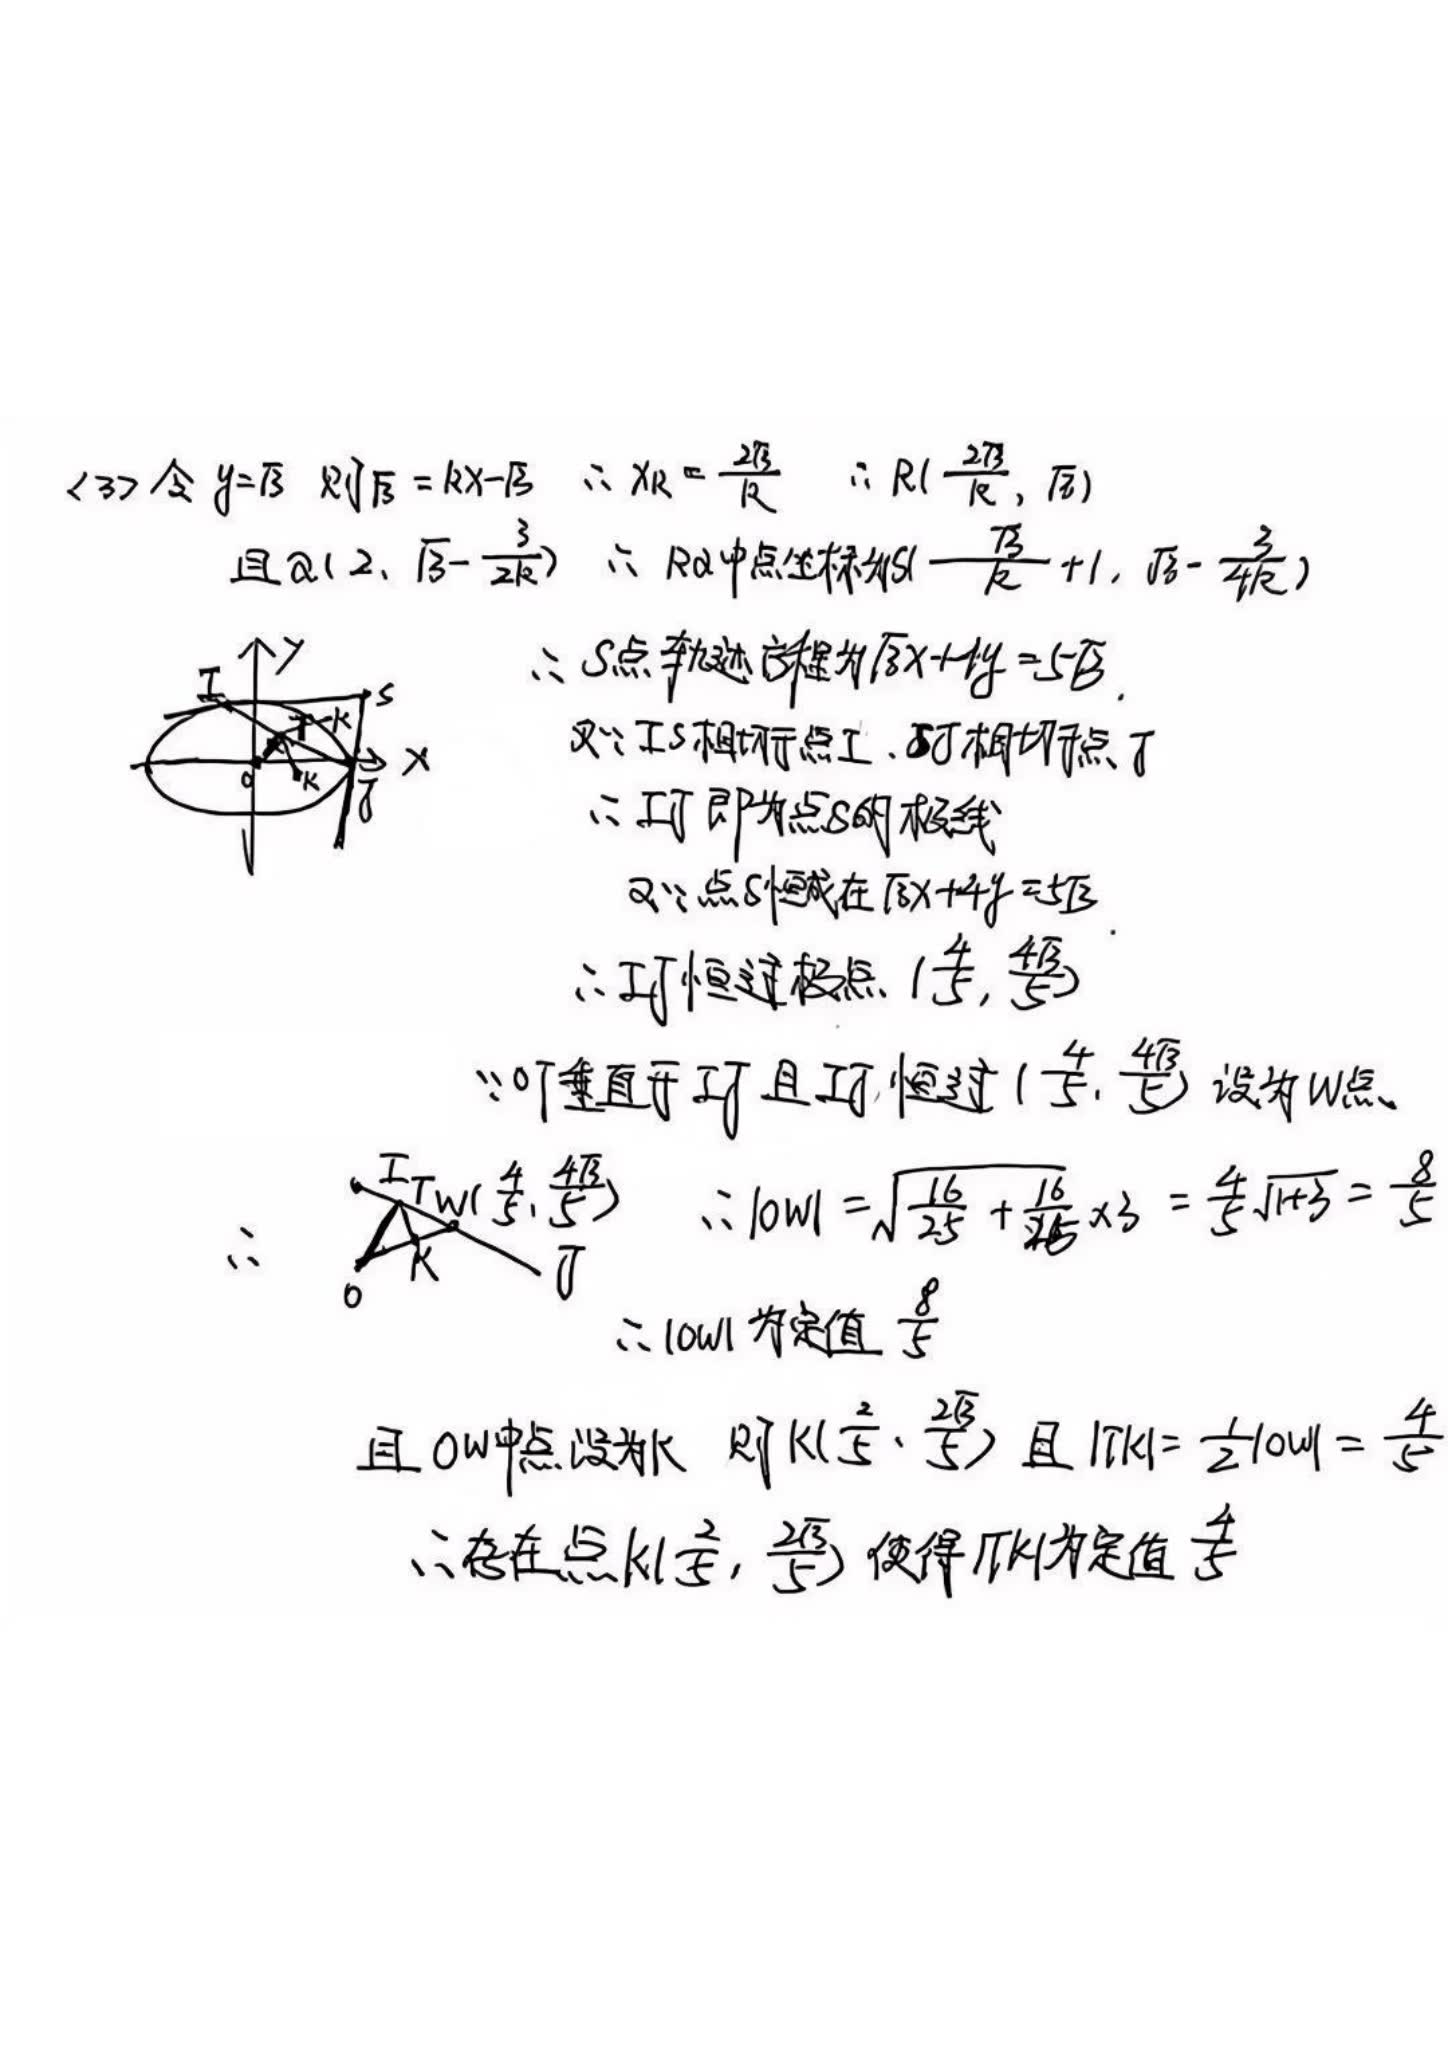 <3> 令 y=√3 则√3 = kx-√3 ∴ x_R = 2√3/k ∴ R(2√3/k, √3)
且Q(2、√3-3/2k) ∴ RQ中点坐标为S(√3/k+1, √3-3/4k)
∴ S点轨迹方程为√3x+4y=5√3.
又∵ IS相切于点I、SJ相切于点J
∴ IJ即为点S的极线
又∵点S恒成在√3x+4y=5√3.
∴ IJ恒过极点(4/5, 4√3/5)
y
I
S
T
K
O
K
x
J
∵OT垂直于IJ且IJ恒过(4/5, 4√3/5)设为W点、
∴
I
T
W(4/5, 4√3/5)
O
K
J
∴|OW| = √(16/25 + 16/25×3) = 4/5√(1+3) = 8/5
∴|OW|为定值 8/5
且OW中点设为K 则K(2/5、2√3/5)且|TK| = 1/2|OW| = 4/5
∴存在点K(2/5, 2√3/5)使得|TK|为定值4/5